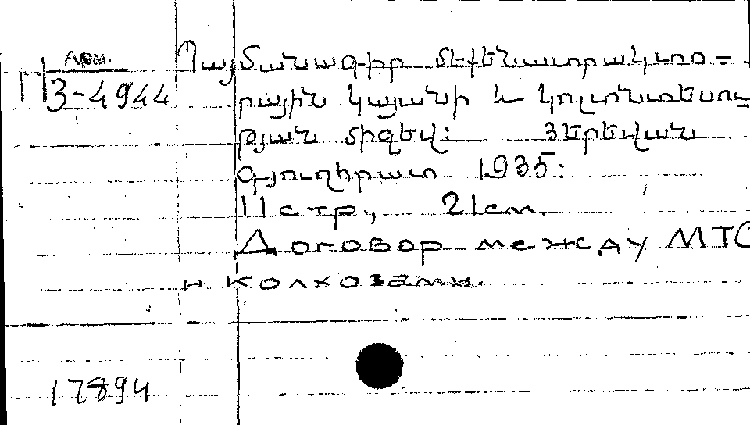 Арм.
П 3-4944
Պայմանագիր մեքենատրակտո-
րային կայանի և կոլտնտեսու
թյան միջև: Յերեվան
Գյուղհրատ 1935:
11 стр., 21 см.
Договор между МТС
и колхозами.
17894